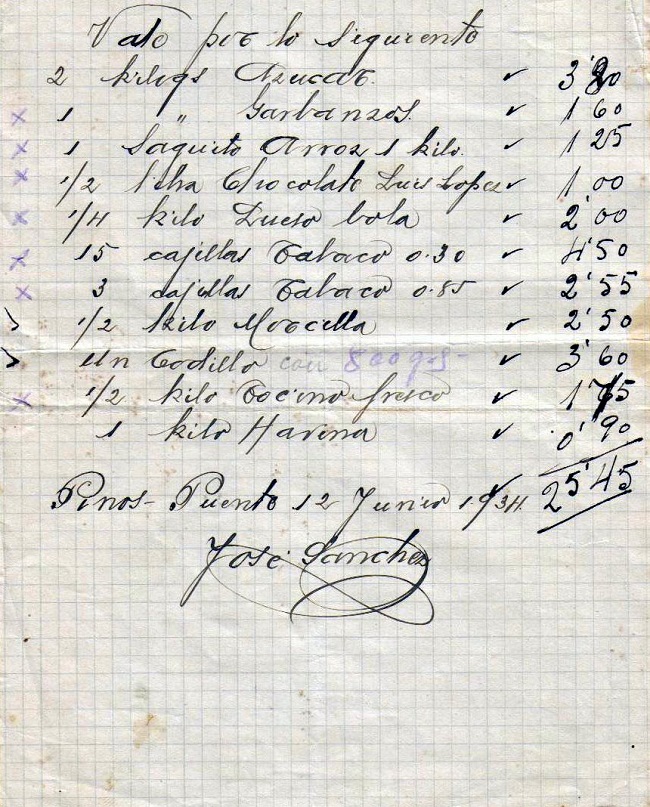 Vale por lo Siguiente
2 kilogs Azucar. ✓ 3'80
x 1 " Garbanzos. ✓ 1'60
x 1 Saquito Arroz 1 kilo. ✓ 1'25
x 1/2 libra Chocolate Luis Lopez ✓ 1'00
x 1/4 kilo Queso bola ✓ 2'00
x 15 cajillas Tabaco 0.30 ✓ 4'50
x 3 cajillas Tabaco 0.85 ✓ 2'55
✓ 1/2 kilo Morcilla ✓ 2'50
✓ Un Codillo con 800 gs- ✓ 3'60
x 1/2 kilo Tocino fresco ✓ 1'75
1 kilo Harina ✓ 0'90
25'45
Pinos-Puente 12 Junio 1.934.
José Sanchez